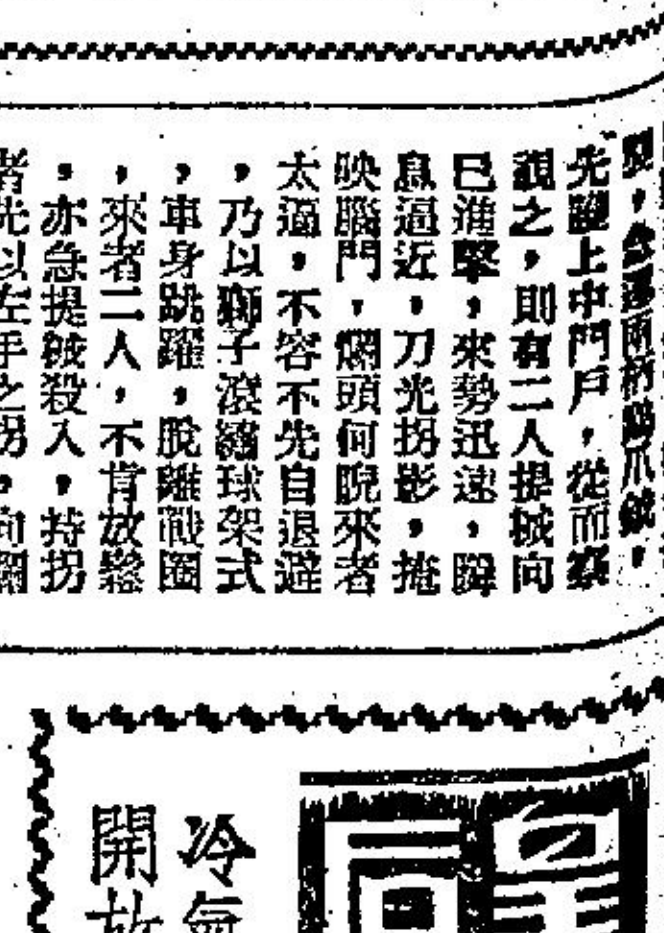 先躍上中門戶,從而察
觀之,則有二人提械向
己進擊,來勢迅速,瞬
息逼近,刀光拐影,掩
映腦門,爛頭何睨來者
太逼,不容不先自退避
,乃以獅子滾繡球架式
,車身跳躍,脫離戰圈
,來者二人,不肯放鬆
,亦急提械殺入,持拐
者先以左手之拐,向爛
冷氣
開放